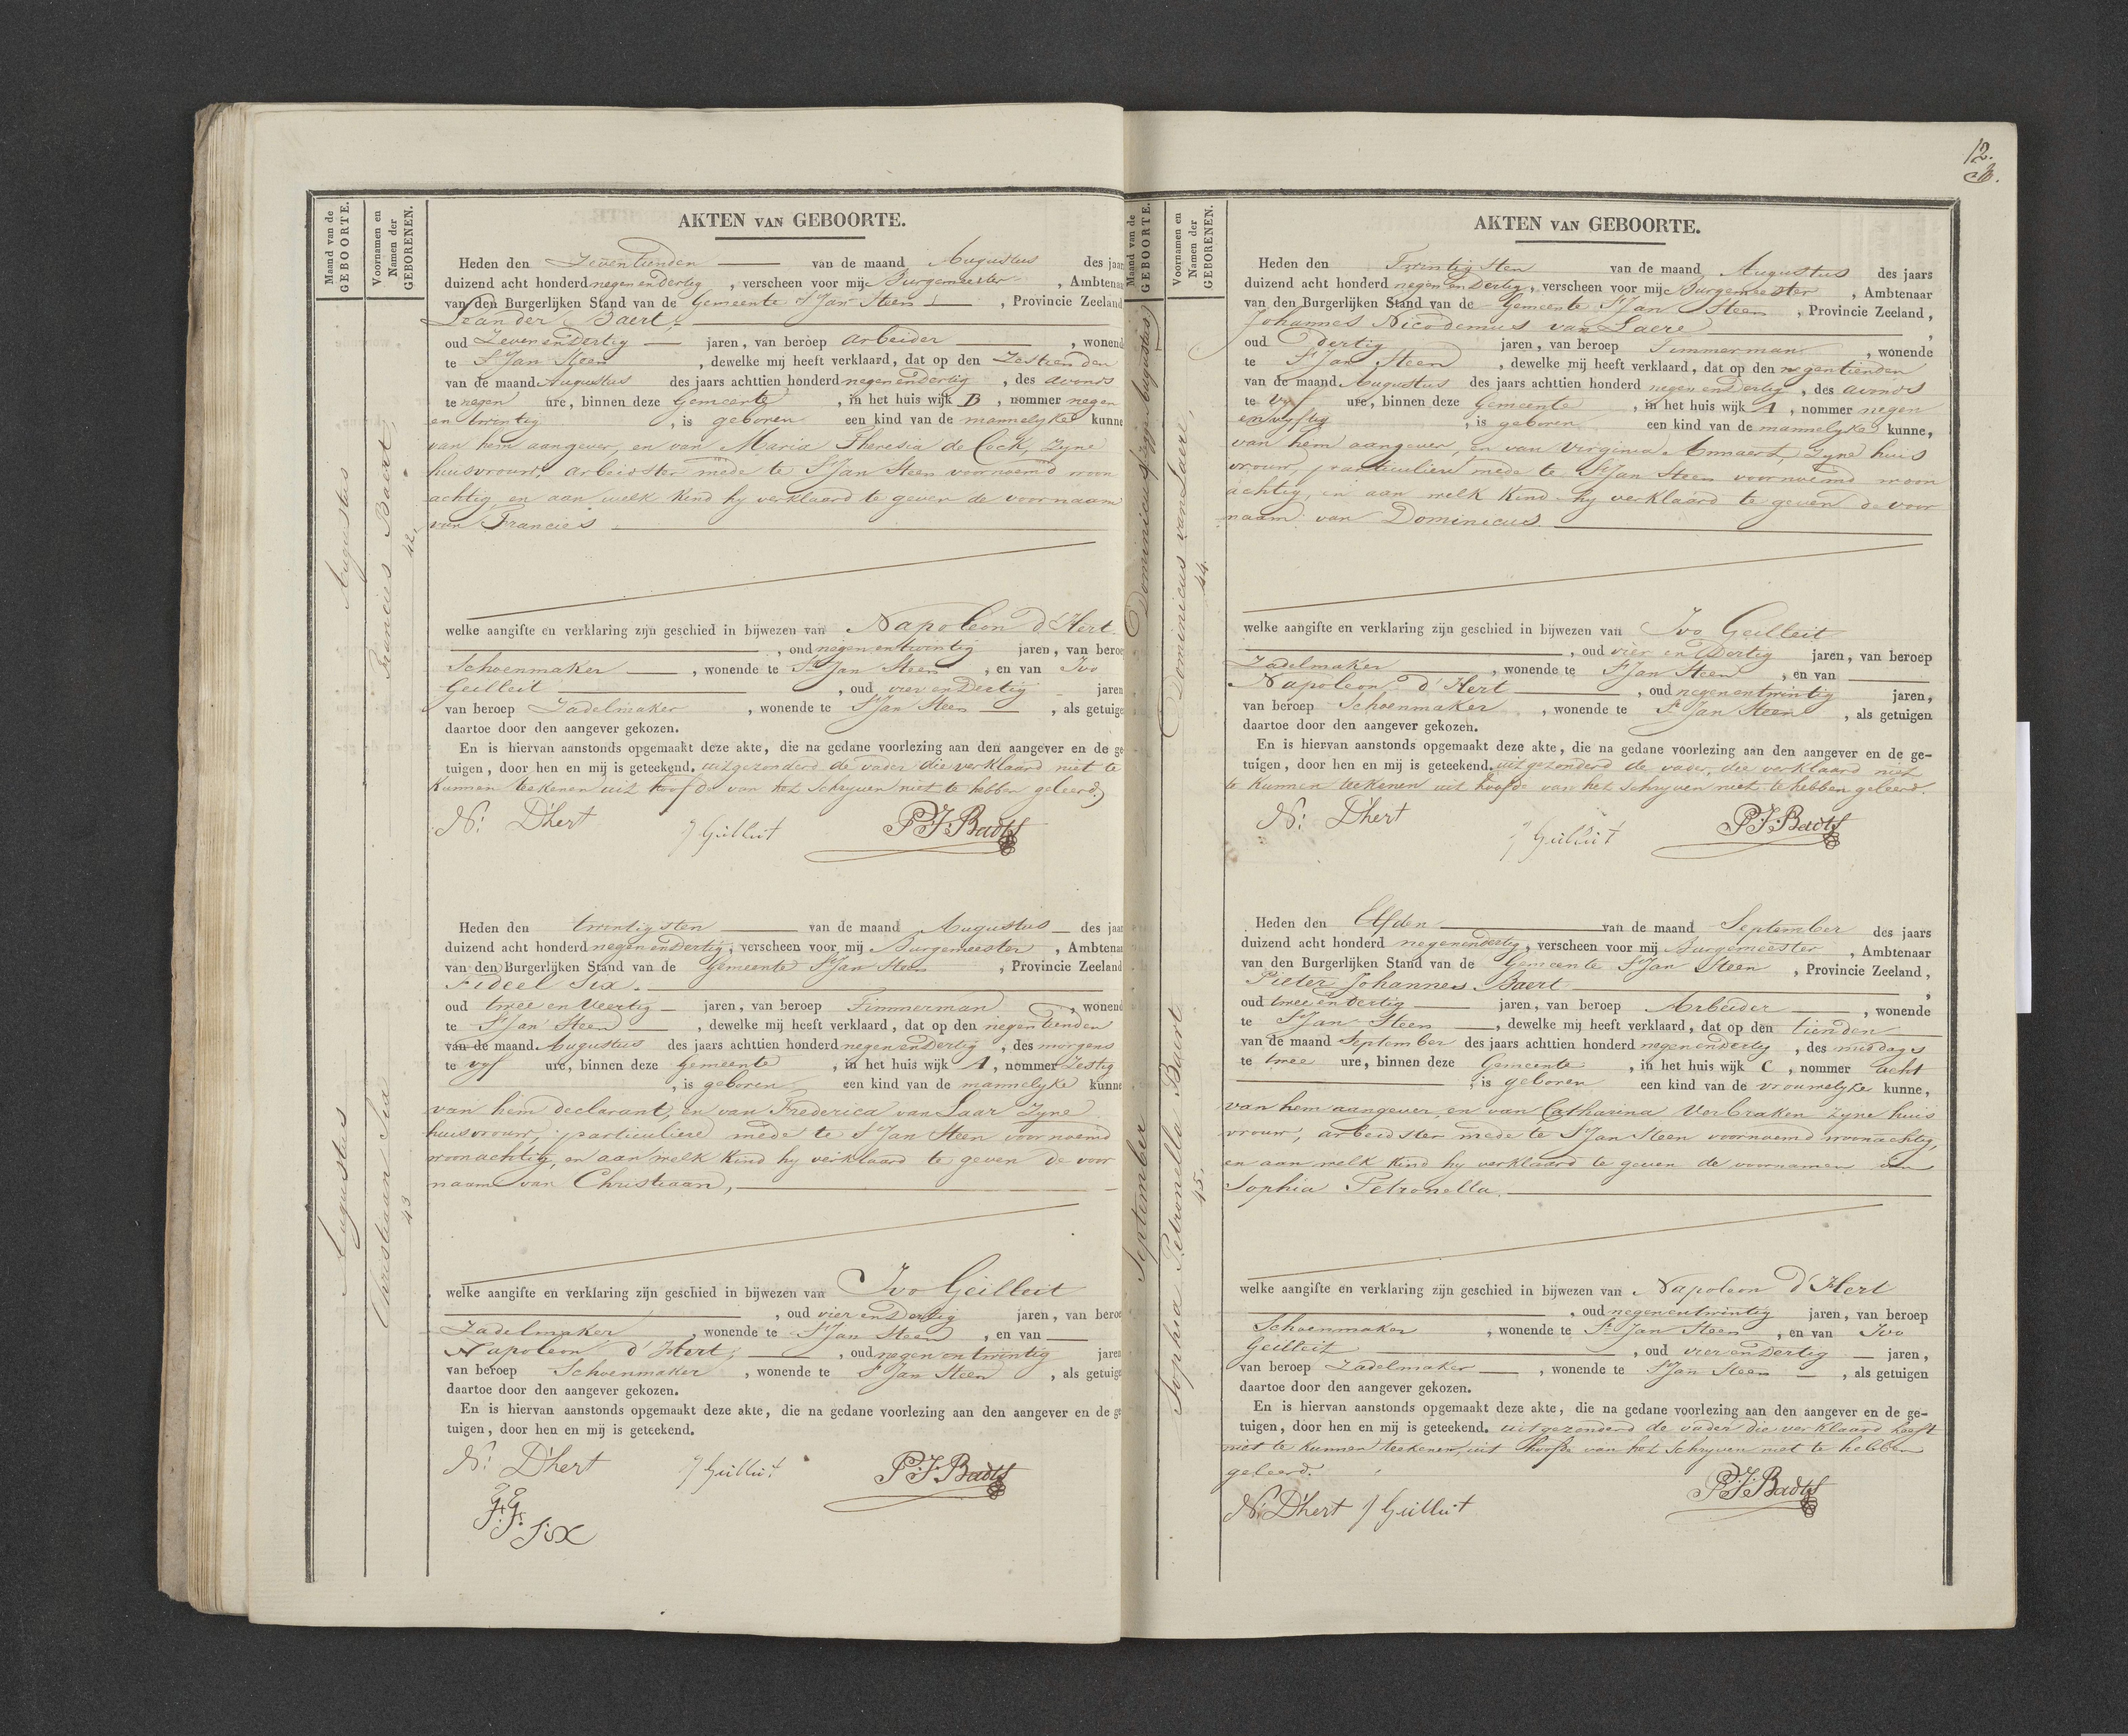 Maand van de
GEBOORTE.
Voornamen en
Namen der
GEBORENEN.
Augustus
Francies Baert,
42.
Augustus
Christiaan Six
43
AKTEN VAN GEBOORTE.
Heden den Zeventienden van de maand Augustus des jaar
duizend acht honderd negen en dertig, verscheen voor mij Burgemeester, Ambtenaa
van den Burgerlijken Stand van de Gemeente St Jan Steen, Provincie Zeeland
Leander Baert,
oud Zeven en dertig jaren, van beroep arbeider, wonend
te St Jan Steen, dewelke mij heeft verklaard, dat op den Zestienden
van de maand Augustus des jaars achttien honderd negen en dertig, des avonds
te negen ure, binnen deze Gemeente, in het huis wijk B, nommer negen
en twintig, is geboren een kind van de mannelyke kunne
van hem aangever, en van Maria Theresia de Cock, zyne
huisvrouw, arbeidster mede te St Jan Steen voornoemd woon
achtig en aan welk kind hy verklaard te geven de voornaam
van Francies
welke aangifte en verklaring zijn geschied in bijwezen van Napoleon d'Hert
, oud negen en twintig jaren, van beroe
Schoenmaker, wonende te St Jan Steen, en van Ivo
Geilleit, oud vier en dertig jaren
van beroep Zadelmaker, wonende te St Jan Steen, als getuige
daartoe door den aangever gekozen.
En is hiervan aanstonds opgemaakt deze akte, die na gedane voorlezing aan den aangever en de ge
tuigen, door hen en mij is geteekend. uitgezonderd de vader die verklaard niet te
kunnen teekenen uit hoofde van het schryven niet te hebben geleerd.
N: D'hert J Guilluit P.J. Badts
Heden den twintigsten van de maand Augustus des jaar
duizend acht honderd negen en dertig, verscheen voor mij Burgemeester, Ambtenaa
van den Burgerlijken Stand van de Gemeente St Jan Steen, Provincie Zeeland
Fideel Six.
oud twee en Veertig jaren, van beroep Timmerman, wonend
te St Jan Steen, dewelke mij heeft verklaard, dat op den negentienden
van de maand Augustus des jaars achttien honderd negen en dertig, des morgens
te vyf ure, binnen deze Gemeente, in het huis wijk A, nommer Zestig
, is geboren een kind van de mannelyke kunne
van hem declarant, en van Frederica van Laar zyne
huisvrouw, particuliere mede te St Jan Steen voornoemd
woonachtig, en aan welk kind hy verklaard te geven de voor
naam van Christiaan,
welke aangifte en verklaring zijn geschied in bijwezen van Ivo Geilleit
, oud vier en dertig jaren, van beroe
Zadelmaker, wonende te St Jan Steen, en van
Napoleon d'Hert, oud negen en twintig jaren
van beroep Schoenmaker, wonende te St Jan Steen, als getuige
daartoe door den aangever gekozen.
En is hiervan aanstonds opgemaakt deze akte, die na gedane voorlezing aan den aangever en de ge
tuigen, door hen en mij is geteekend.
N: D'hert J Guilluit P.J. Badts
Six
12.
Maand van de
GEBOORTE.
Voornamen en
Namen der
GEBORENEN.
Dominicus Augustus
Dominicus van Laere,
44.
September
Sophia Petronella Baert
45.
AKTEN VAN GEBOORTE.
Heden den Twintigsten van de maand Augustus des jaars
duizend acht honderd negen en dertig, verscheen voor mij Burgemeester, Ambtenaar
van den Burgerlijken Stand van de Gemeente St Jan Steen, Provincie Zeeland,
Johannes Nicodemus van Laere
oud dertig jaren, van beroep Timmerman, wonende
te St Jan Steen, dewelke mij heeft verklaard, dat op den negentienden
van de maand Augustus des jaars achttien honderd negen en dertig, des avonds
te vyf ure, binnen deze Gemeente, in het huis wijk A, nommer negen
en vyftig, is geboren een kind van de mannelyke kunne,
van hem aangever, en van Virginia Annaert, zyne huis
vrouw, particuliere mede te St Jan Steen voornoemd woon
achtig, en aan welk kind hy verklaard te geven de voor
naam van Dominicus.
welke aangifte en verklaring zijn geschied in bijwezen van Ivo Geilleit
, oud vier en dertig jaren, van beroep
Zadelmaker, wonende te St Jan Steen, en van
Napoleon d'Hert, oud negen en twintig jaren,
van beroep Schoenmaker, wonende te St Jan Steen, als getuigen
daartoe door den aangever gekozen.
En is hiervan aanstonds opgemaakt deze akte, die na gedane voorlezing aan den aangever en de ge-
tuigen, door hen en mij is geteekend. uitgezonderd de vader, die verklaard niet
te kunnen teekenen uit hoofde van het schryven niet te hebben geleerd.
N: D'hert J Guilluit P.J. Badts
Heden den Elfden van de maand September des jaars
duizend acht honderd negenendertig, verscheen voor mij Burgemeester, Ambtenaar
van den Burgerlijken Stand van de Gemeente St Jan Steen, Provincie Zeeland,
Pieter Johannes Baert,
oud twee en dertig jaren, van beroep Arbeider, wonende
te St Jan Steen, dewelke mij heeft verklaard, dat op den tienden
van de maand September des jaars achttien honderd negenendertig, des middags
te twee ure, binnen deze Gemeente, in het huis wijk C, nommer acht
, is geboren een kind van de vrouwelyke kunne,
van hem aangever, en van Catharina Verbraken zyne huis
vrouw, arbeidster mede te St Jan Steen voornoemd woonachtig,
en aan welk kind hy verklaard te geven de voornamen van
Sophia Petronella.
welke aangifte en verklaring zijn geschied in bijwezen van Napoleon d'Hert
, oud negenentwintig jaren, van beroep
Schoenmaker, wonende te St Jan Steen, en van Ivo
Geilleit, oud vier en dertig jaren,
van beroep Zadelmaker, wonende te St Jan Steen, als getuigen
daartoe door den aangever gekozen.
En is hiervan aanstonds opgemaakt deze akte, die na gedane voorlezing aan den aangever en de ge-
tuigen, door hen en mij is geteekend. uitgezonderd de vader die verklaard heeft
niet te kunnen teekenen, uit hoofde van het schryven niet te hebben
geleerd.
N: D'hert J Guilluit P.J. Badts